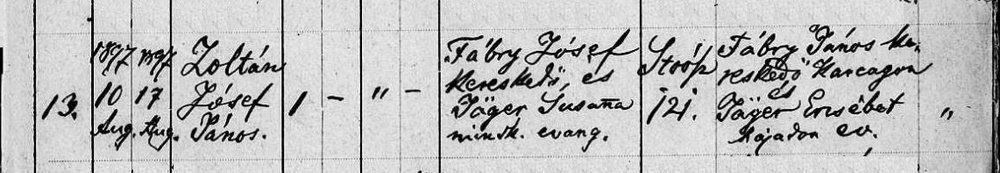 13.
1897
10
Aug.
1897
17
Aug.
Zoltán
Jósef
János.
1
–
"
–
Fábry Jósef
kereskedő, és
Jäger Susanna
mindk. evang.
Stoósz
121.
Fábry János ke-
reskedő Karcagon
és
Jäger Ersébet
Hajadon ev.
"